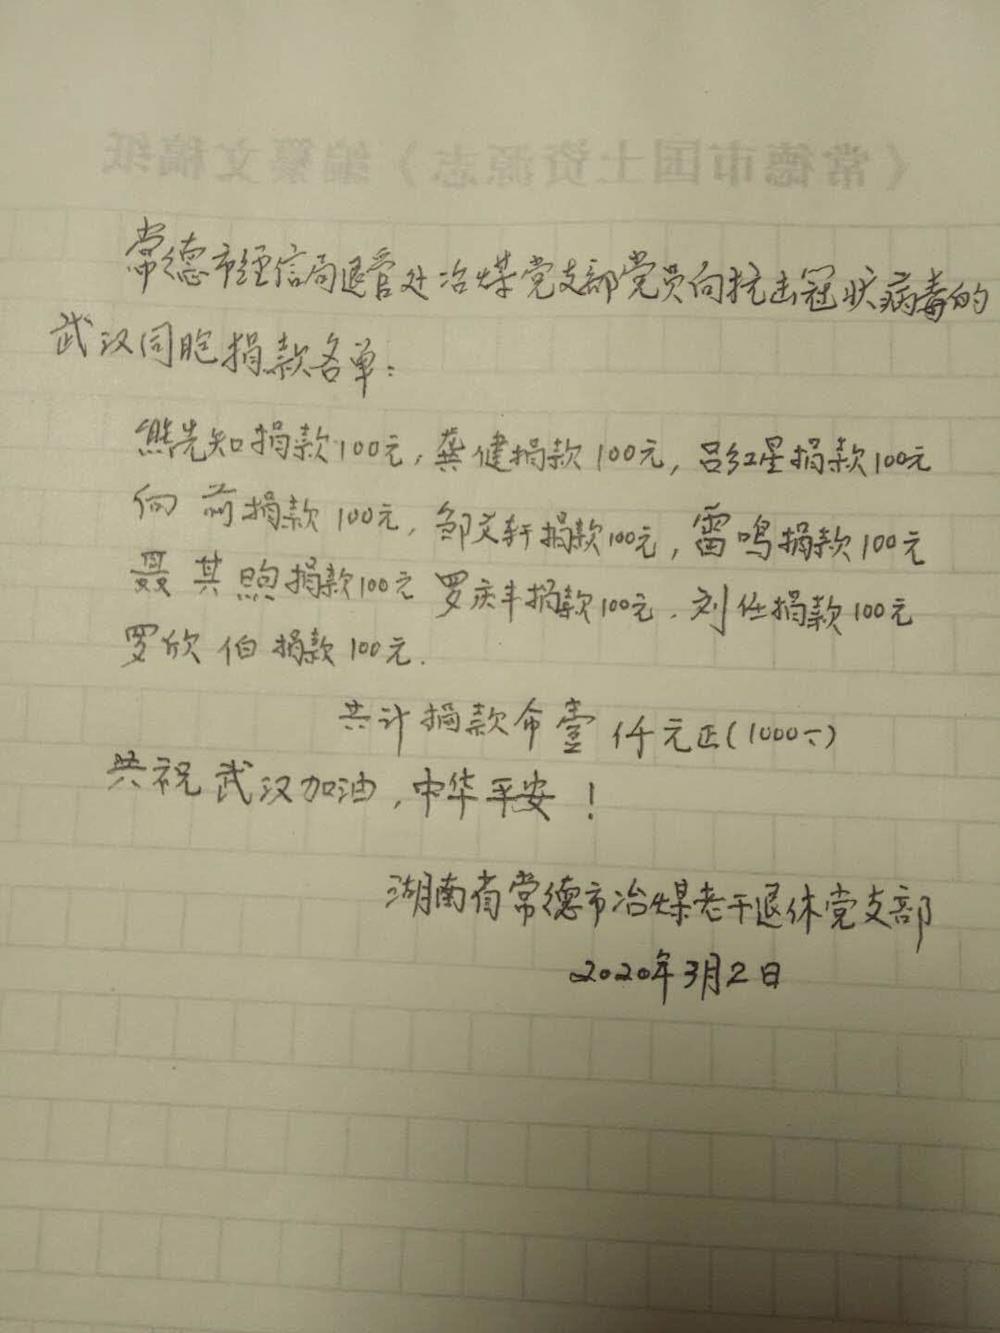 《常德市国土资源志》编纂文稿纸
常德市经信局退管处冶煤党支部党员向抗击冠状病毒的
武汉同胞捐款名单:
熊先知捐款100元,龚健捐款100元,吕红星捐款100元
向前捐款100元,邹文轩捐款100元,雷鸣捐款100元
聂其煦捐款100元 罗庆丰捐款100元.刘任捐款100元
罗欣伯捐款100元.
共计捐款币壹仟元正(1000元)
共祝武汉加油,中华平安!
湖南省常德市冶煤老干退休党支部
2020年3月2日